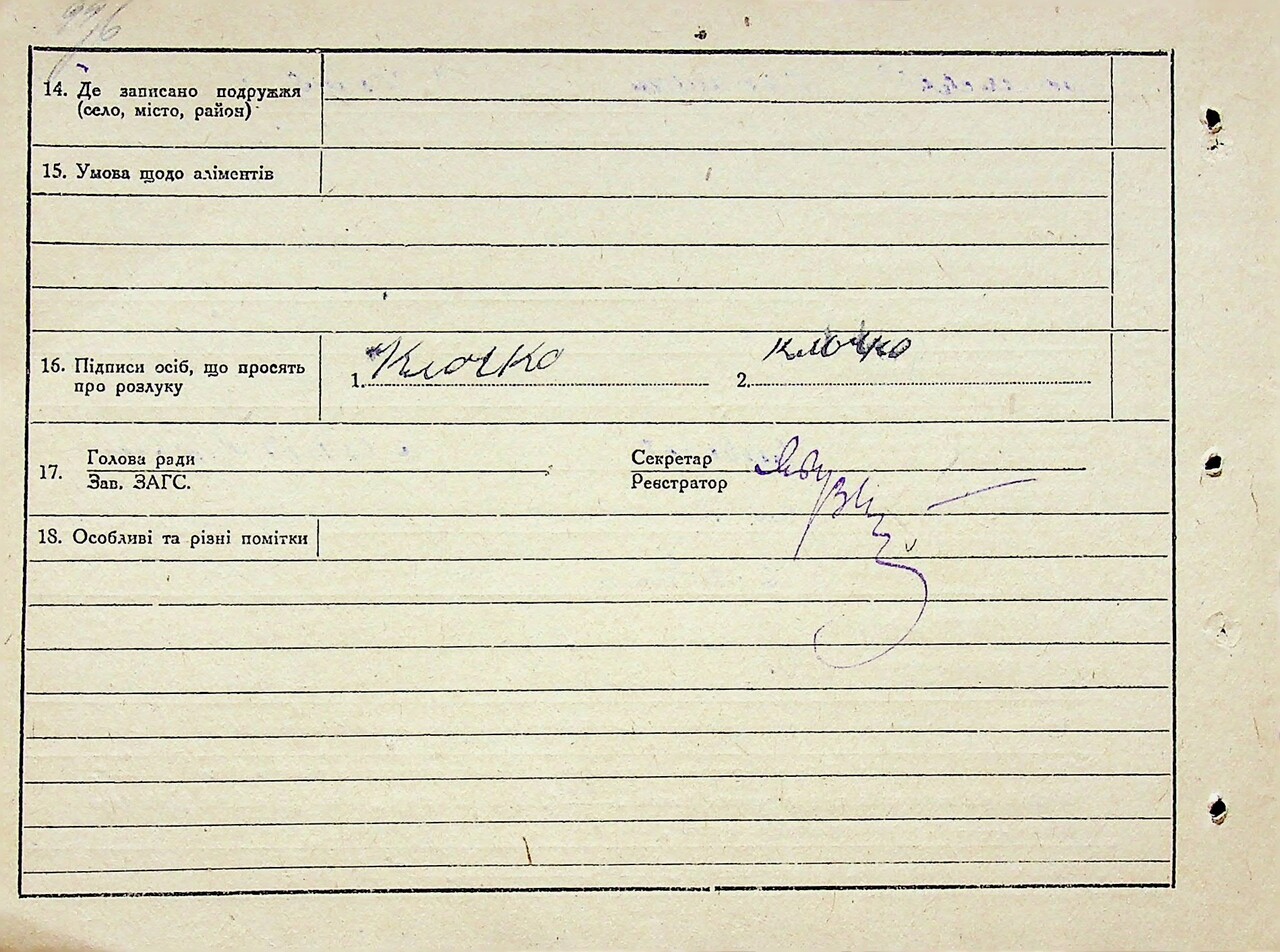 14. Де записано подружжя
(село, місто, район)
15. Умова щодо аліментів
16. Підписи осіб, що просять
про розлуку
1. Клочко
2. Клочко
17. Голова ради
Зав. ЗАГС.
Секретар
Реєстратор
18. Особливі та різні помітки